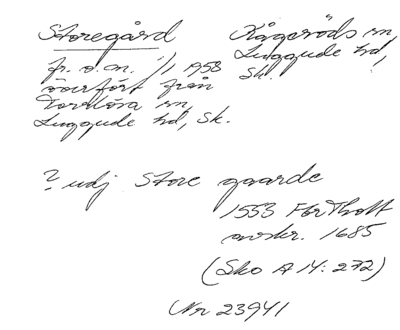 Storegård
fr. o. m. 1/1 1958
överfört från
Torrlösa sn,
Luggude hd, Sk.
Kågeröds sn,
Luggude hd,
Sk.
? udj Store gaarde
1553 FörTholt
avskr. 1685
(Sko A 14: 272)
Nr 23941